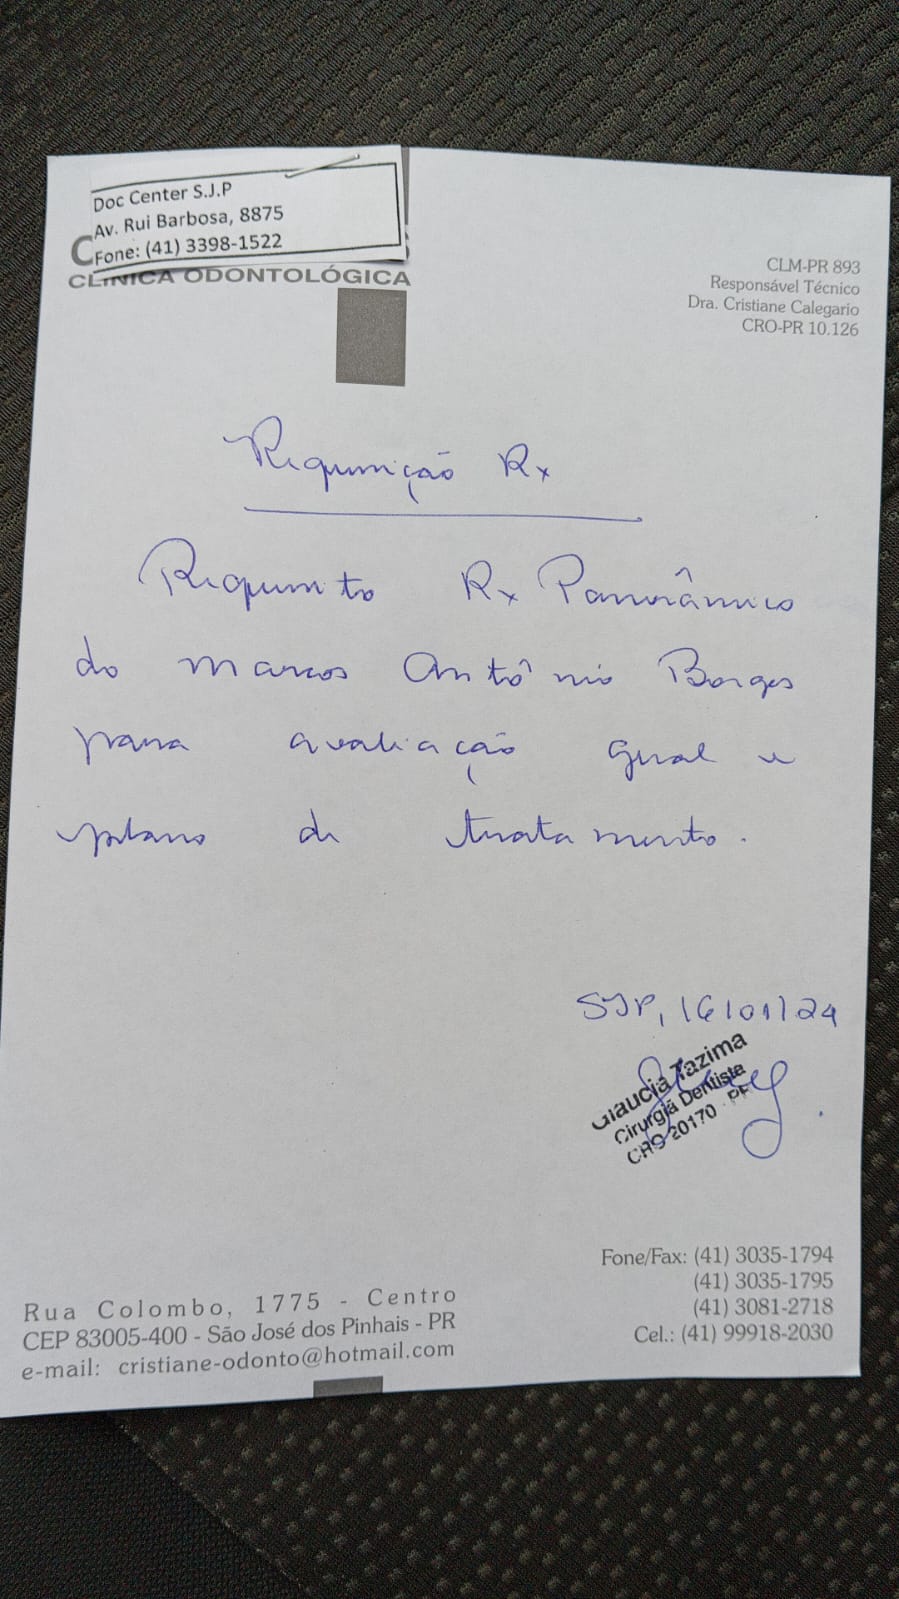 Doc Center S.J.P
Av. Rui Barbosa, 8875
Fone: (41) 3398-1522
CLÍNICA ODONTOLÓGICA
CLM-PR 893
Responsável Técnico
Dra. Cristiane Calegario
CRO-PR 10.126
Requisição Rx
Requisito Rx Panorâmico
do Marcos Antônio Borges
para avaliação geral e
plano de tratamento.
SJP, 16/01/24
Glaucia Tazima
Cirurgiã Dentista
CRO 20170 - PR
Fone/Fax: (41) 3035-1794
(41) 3035-1795
(41) 3081-2718
Cel.: (41) 99918-2030
Rua Colombo, 1775 - Centro
CEP 83005-400 - São José dos Pinhais - PR
e-mail: cristiane-odonto@hotmail.com